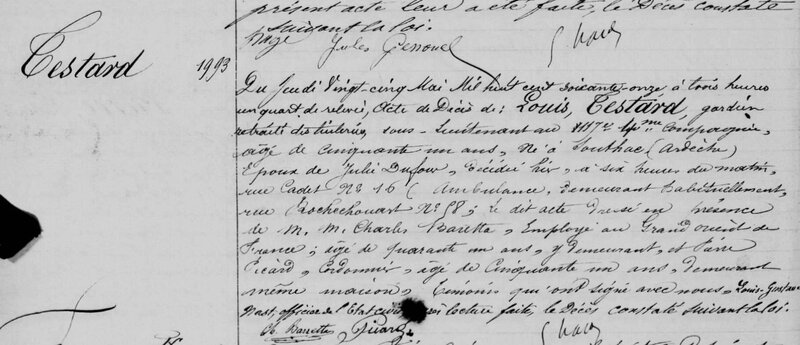 présent acte leur a été faite, le Décès constaté
suivant la loi.
Jules Genouel
Testard 1993
Du Jeudi Vingt-cinq Mai Mil huit cent soixante-onze à trois heures
un quart de relevée, Acte de Décès de : Louis, Testard gardien
retraité des tuileries, sous-lieutenant au 117e 4me Compagnie,
âgé de cinquante un ans, Né à (Ardèche)
Epoux de Julie Dufour, Décédé hier, à six heures du matin,
rue Cadet No 16 (Ambulance, Demeurant habituellement,
rue Rochechouart No 58 ; le dit acte dressé en présence
de M. M. Charles Baretta, Employé au Grand orient de
France ; âgé de quarante un ans, y demeurant, et Pierre
Picard, Cordonnier, âgé de Cinquante un ans, demeurant
même maison, Témoins qui ont signé avec nous, Louis-Gustave
Nast, officier de l'Etat civil lecture faite, le Décès constaté suivant la loi.
Ch. Barretta Picard